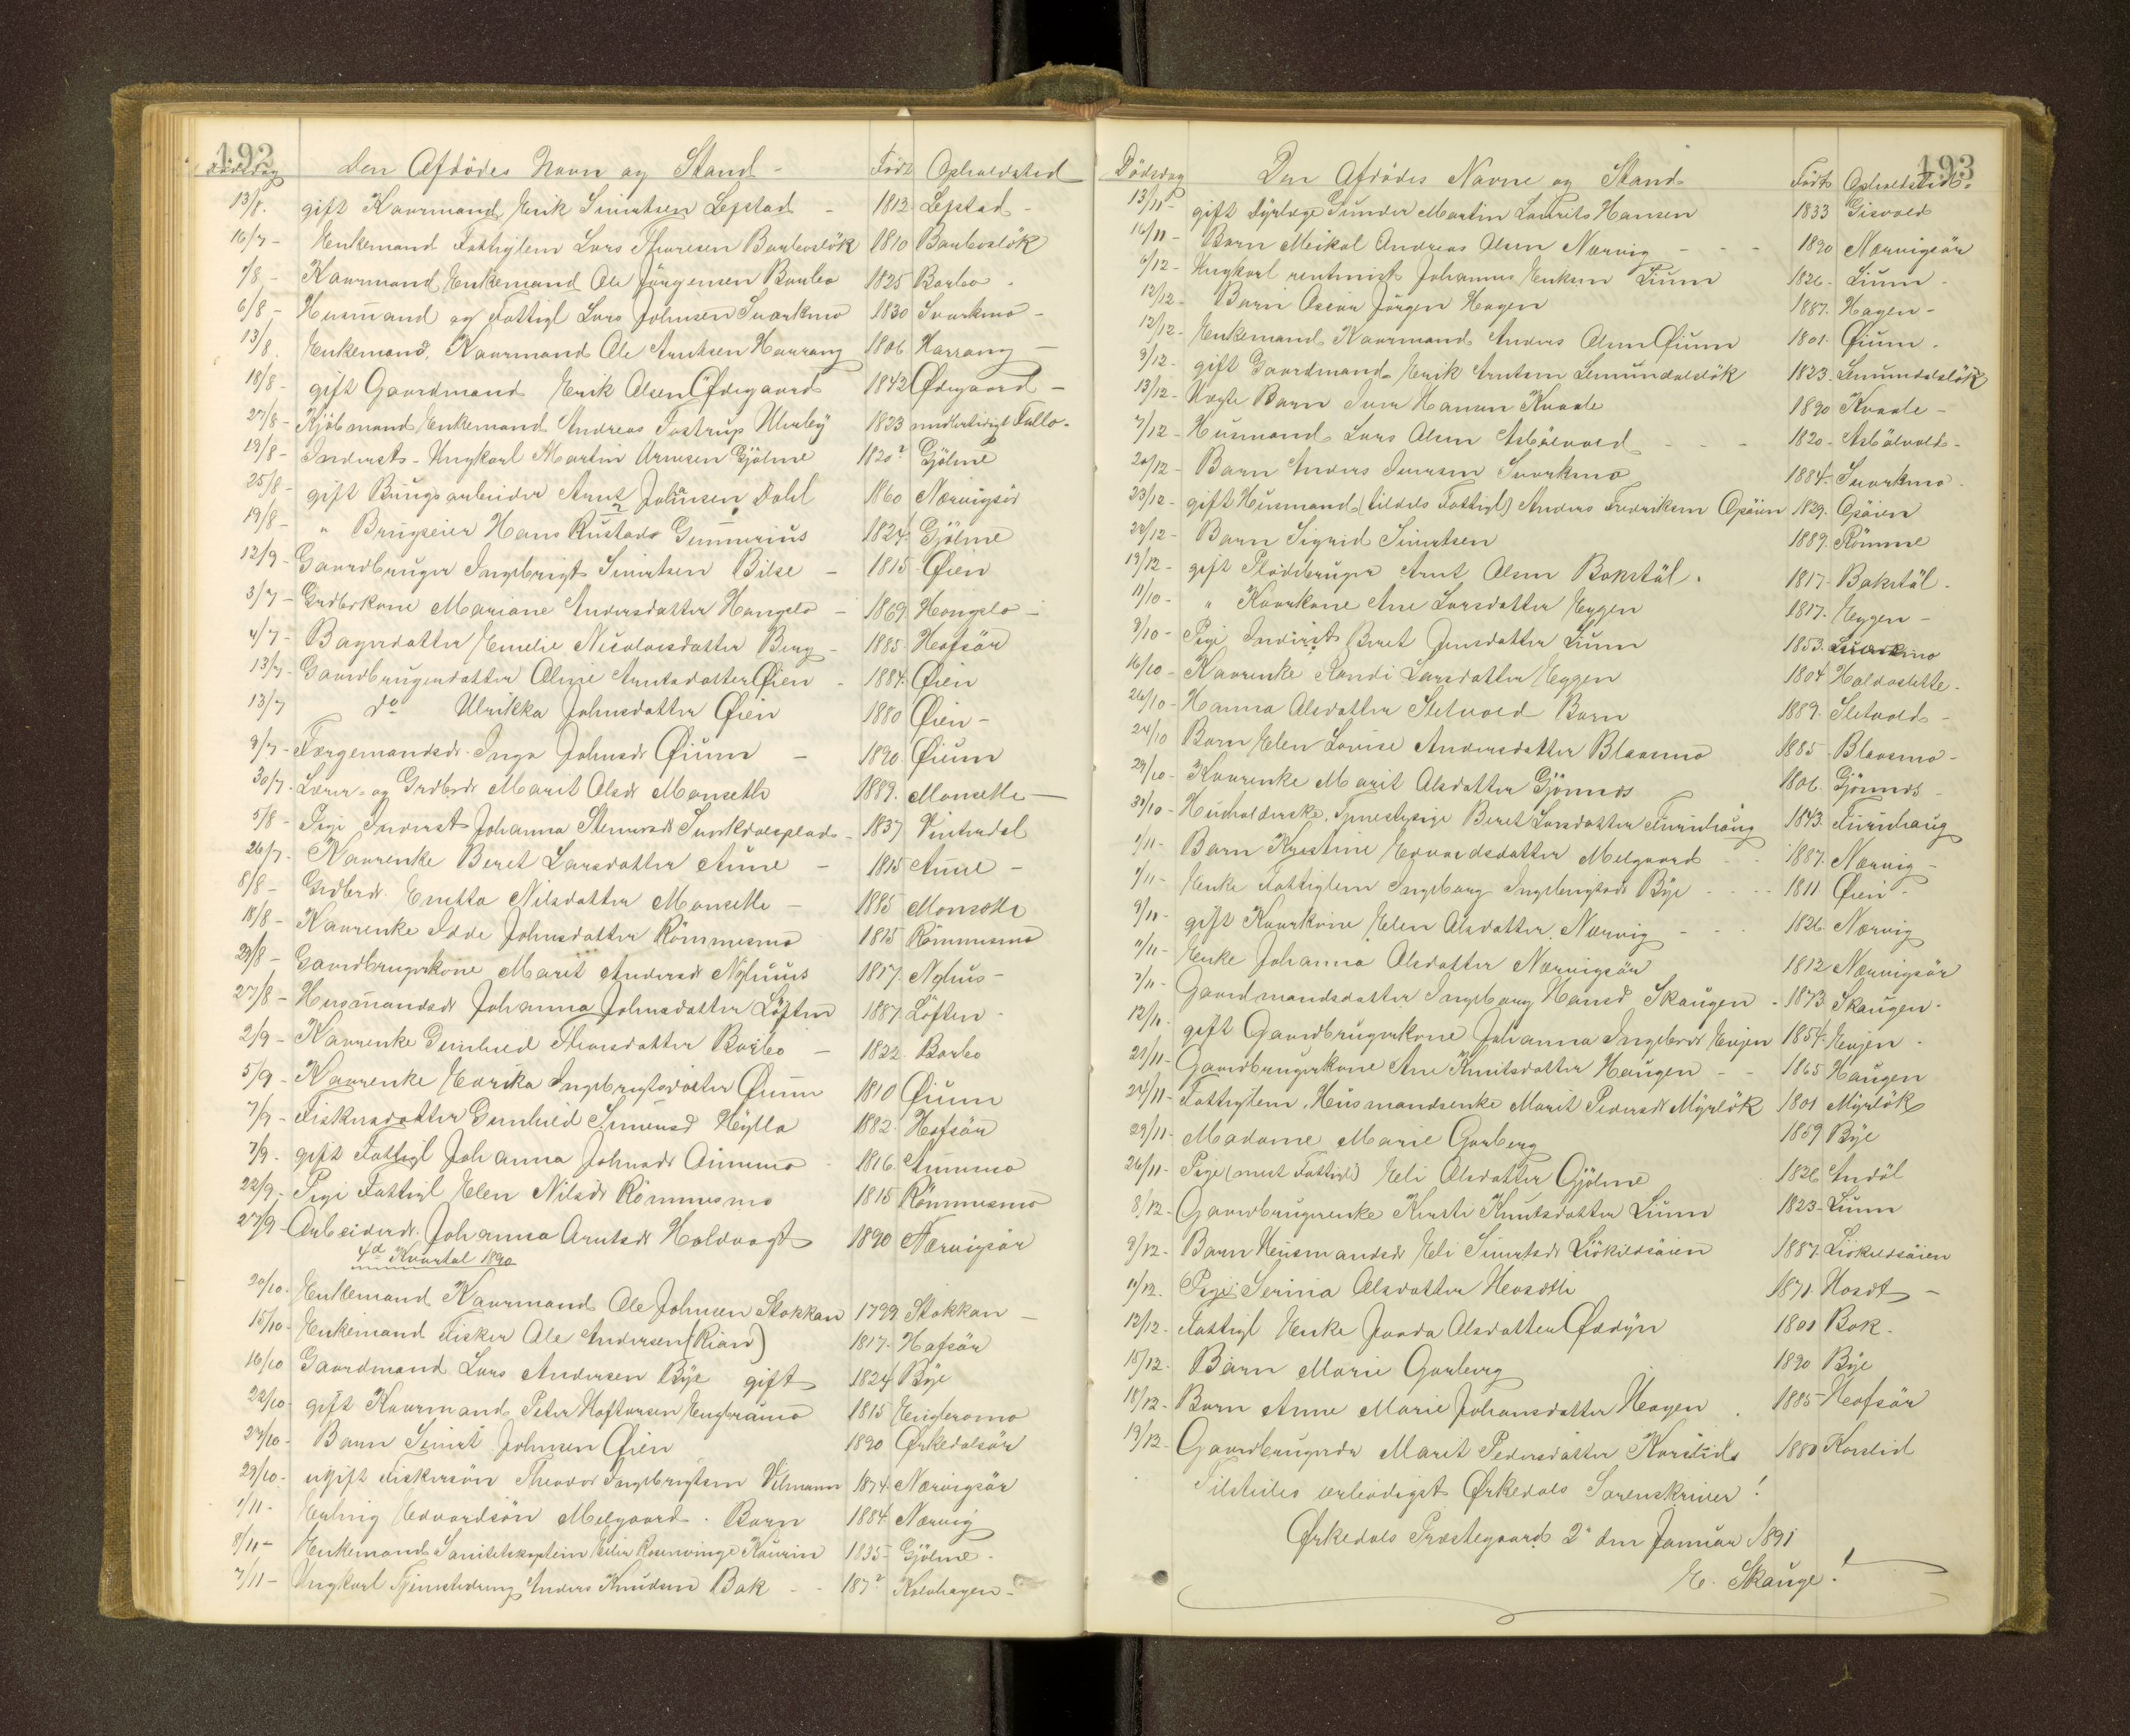 192
Dödsdag Den Afdödes Navn og Stand - Född Opholdssted
13/8. gift Kaarmand Erik Sivertsen Lefstad - 1813 Lefstad -
16/7 - Enkemand Fattiglem Lars Thoresen Barboslök 1810 Barboslök
7/8 - Kaarmand Enkemand Ole Jörgensen Barbo 1825 Barbo -
6/8 - Husmand og Fattigl Lars Johnsen Svorkmo 1830 Svorkmo -
13/8. Enkemand, Kaarmand Ole Arntsen Harrang 1806 Harrang -
18/8 - gift Gaardmand Erik Olsen Ödegaard 1842 Ödegaard -
27/8 - Kjöbmand Enkemand Andreas Tostrup Urbÿ 1823 midlertidigt
19/8 - Inderst - Ungkarl Martin Arnesen Gjölme 1820? Gjölme
25/8 - gift Brugsarbeider Arnt Johnsen Dahl 1860 Nærvigsör
19/8 - " Brugseier Hans Rustad Gunnerius 1824 Gjölme
12/9 - Gaardbruger Ingebrigt Sivertsen Bilse - 1815 Øien
3/7 - Grdbrkone Mariane Andersdatter Hongslo - 1869 Hongslo -
4/7 - Bagerdatter Emelie Nicolaisdatter Berg - 1885 Hofsör
13/7 - Gaardbrugerdatter Oline Arntsdatter Øien - 1884 Øien
13/7 do Ulrikka Johnsdatter Øien 1880 Øien -
9/7 - Færgemandsdr. Inga Johnsdr Øium - 1890 Øium
30/7 - Lærer- og Grdbrdr Marit Olsdr Monsetti 1889. Monsetti -
5/8 - Pige Inderst Johanna 1837 Vinterdal
26/7 - Kaarenke Beret Larsdatter Aune - 1815 Aune -
8/8 - Grdbrdr. Nilsdatter Monsetti - 1885 Monsetti
18/8 - Kaarenke Johnsdatter Römmesmo 1815 Römmesmo
29/8 - Gaardbrugerkone Marit Andersdr Nÿhuus 1817 Nyhus -
27/8 - Husmandsdr Johanna Johnsdatter Löften 1887 Löften -
2/9 - Kaarenke Gunhild Thorsdatter Barbo - 1822 Barbo
5/9 - Kaarenke Ingebrigtsdatter Øium 1810 Øium
7/9 - Fiskersdatter Gunhild Simonsd Hÿlla 1882 Hofsör
7/9 - gift Fattigl Johanna Johnsdr Aunemo 1816 Aunemo
22/9 - Pige Fattigl Elen Nilsdr Römmesmo 1815 Römmesmo
27/9 - Arbeiderdr. Johanna Arntsdr Holdvagt 1890 Nærvigsör
4d Kvartal 1890
20/10. Enkemand Kaarmand Ole Johnsen Stokkan 1799 Stokkan -
15/10 - Enkemand Fisker Ole Andersen (Rian) 1817. Hofsör
16/10 Gaardmand Lars Andersen Bÿe gift 1824 Bÿe
22/10 - gift Kaarmand Peter Engeramo 1815 Engeramo
27/10 - Barn Sivert Johnsen Øien 1890 Ørkedalsör
29/10 - ugift Fiskersön Theodor Ingebrigtsen Vilmann 1874. Nærvigsör
1/11 - Erling Edvardsön Melgaard. Barn 1884 Nærvig
8/11 - Enkemand Sanitetskaptein Rosenvinge Kaurin 1835 Gjölme -
7/11 - Ungkarl Tjenestedreng Anders Knudsen Bak - - 187? Kolvhagen -
193
Dödsdag Den Afdödes Navne og Stand Född Opholdssted.
13/11 - gift Dÿrlæge Martin Laurits Hansen 1833 Gisvold
16/11 - Barn Meikal Andreas Olsen Nærvig - - - 1890 Nærvigsör
6/12 - Ungkarl rentenist Johannes Eriksen Lium 1826. Lium -
12/12 - Barn Oscar Jörgen Hagen 1887. Hagen -
12/12 - Enkemand Kaarmand Anders Olsen Øium 1801. Øium -
9/12 - gift Gaardmand Erik Arntsen Lomundalslök 1823 Lomundalslök
13/12 - Uægte Barn Iver Hansen Kvaale 1890 Kvaale -
7/12 - Husmand Lars Olsen Asbölvold - - - 1820 - Asbölvold -
20/12 - Barn Anders Iversen Svorkmo 1884 - Svorkmo -
23/12 - gift Husmand (tildels Fattigl) Anders Fredriksen Opöien 1829. Opöien
29/12 - Barn Sigrid Sivertsen 1889. Römme
19/12 - gift Arnt Olsen Bakstöl. 1817 - Bakstöl -
11/10 - " Kaarkone Ane Larsdatter Eggen 1817. Eggen -
9/10 - Pige Inderst Beret Jensdatter Lium 1853.
16/10 - Kaarenke Randi Larsdatter Eggen 1804 Holdaslette -
26/10 - Hanna Olsdatter Sletvold Barn 1889. Sletvold -
24/10 Barn Elen Lovise Andersdatter Blaasmo 1885 - Blaasmo -
29/10 - Kaarenke Marit Olsdatter Gjönnes 1806. Gjönnes -
31/10 - Husholderske, Tjenestepige Beret Larsdatter Furuhaug 1843. Furuhaug
1/11 - Barn Kjerstine Edvardsdatter Melgaard - - 1887. Nærvig -
1/11 - Enke Fattiglem Ingeborg Ingebrigtsdr Bÿe - - - 1811 Øien -
9/11 - gift Kaarkone Elen Olsdatter Nærvig - - 1826. Nærvig
11/11 - Enke Johanna Olsdatter Nærvigsör 1812 Nærvigsör
7/11 - Gaardmandsdatter Ingeborg Hansd Skaugen - 1873 Skaugen -
12/11. gift Gaardbrugerkone Johanna Ingebrdr Evjen 1854 Evjen -
21/11 - Gaardbrugerkone Ane Knutsdatter Haugen - - 1865 Haugen
24/11 - Fattiglem, Husmandsenke Marit Pedersdr Mÿrlök 1801 Mÿrlök
29/11 - Madame Marie Garberg 1859 Bÿe
26/11 - Pige (mest Fattigl) Eli Olsdatter Gjölme 1826 Indöl
8/12 - Gaardbrugerenke Kirsti Knutsdatter Lium 1823 - Lium
9/12 - Barn Husmandsdr Eli Sivertsdr Liökilsöien 1887 Liökilsöien
11/12. Pige Serina Olsdatter 1871. -
12/12 - Fattigl Enke Olsdatter 1801 Bak -
15/12. Barn Marie Garberg 1890 Bÿe
18/12 - Barn Anne Marie Johansdatter Hagen 1885 - Hofsör
19/12 - Gaardbrugerdr Marit Pedersdatter Korslid 1880 Korslid
Tilstiles ærbödigst Ørkedals Sorenskriver!
Ørkedals Præstegaard 2n den Januar 1891
E. Skauge!